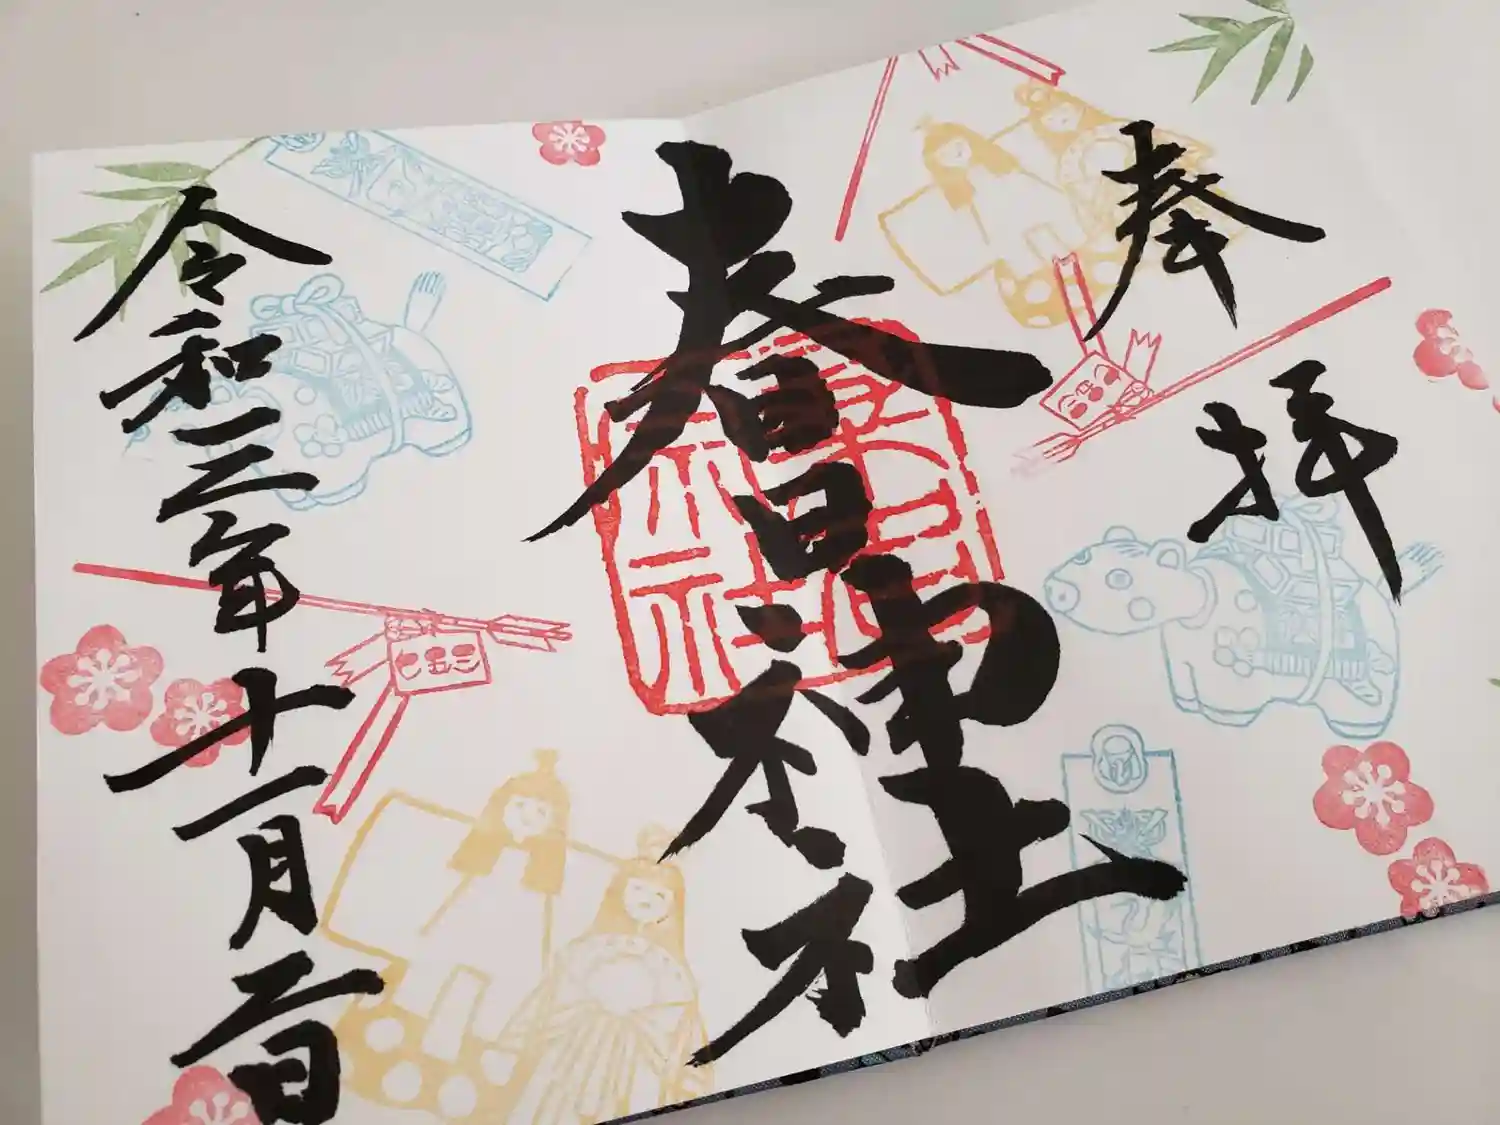 奉拝
春日神社
令和三年十一月二日
七五三